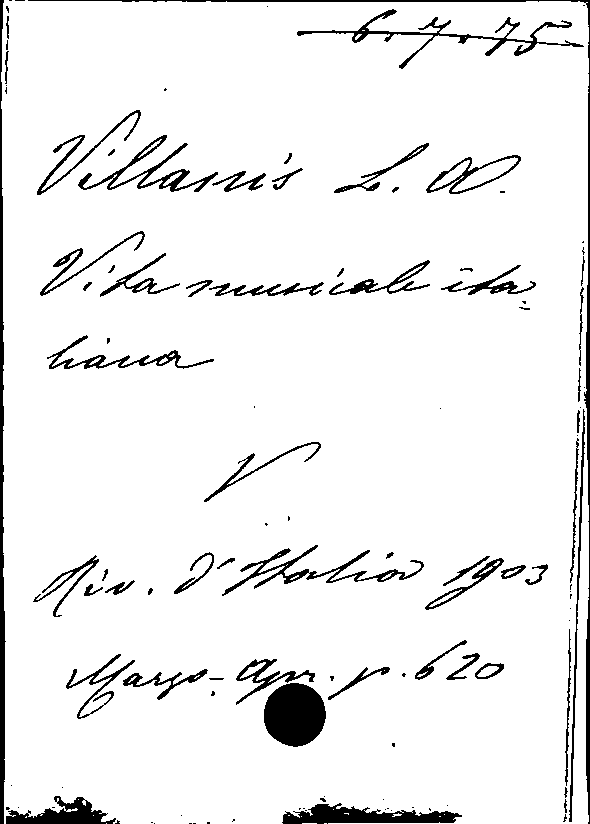 6.7.75
Villanis L. A.
Vita musicale ita=
liana
V
Riv. d'Italia 1903
Marzo-Apr. p. 620